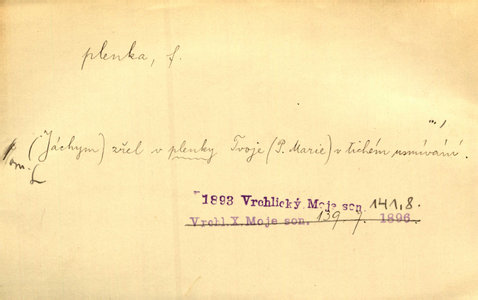 plenka, f.
(Jáchym) zřel v plenky Tvoje (P. Marie) v tichém usmívání.
1893 Vrchlický Moje son. 141,8.
Vrchl. X. Moje son. 139 7. 1896.